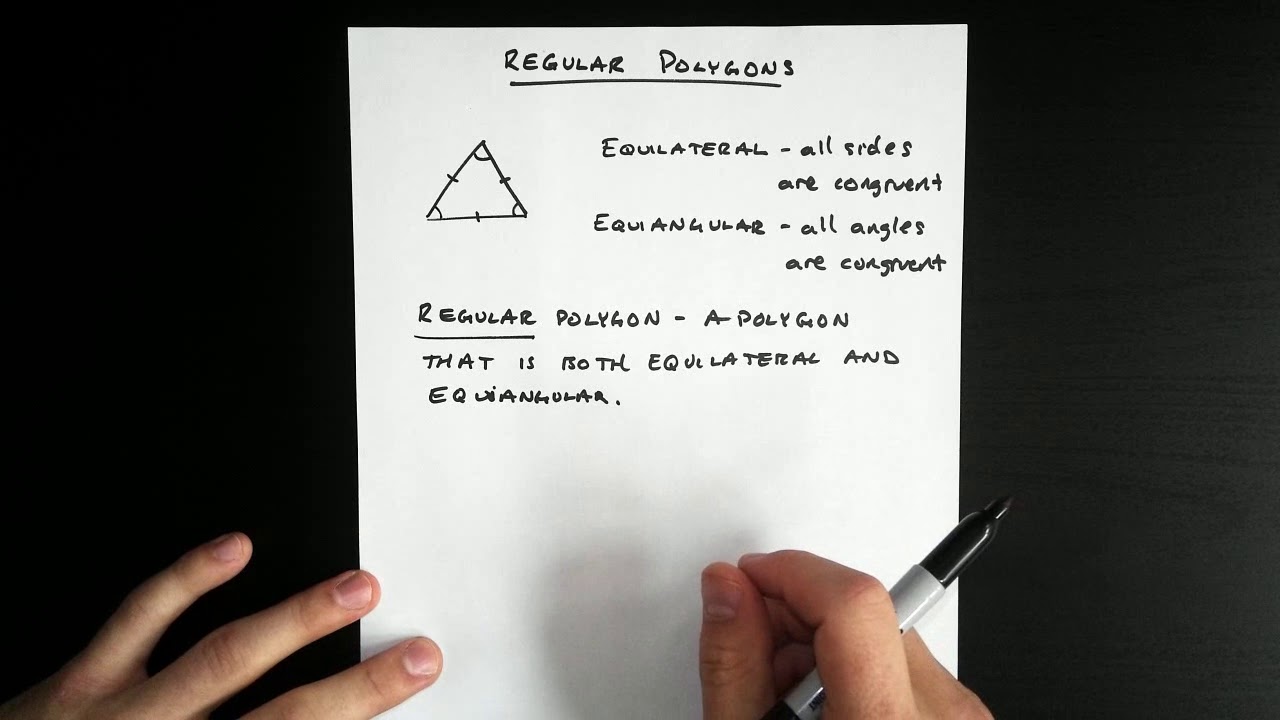 REGULAR POLYGONS
EQUILATERAL - all sides
are congruent
EQUIANGULAR - all angles
are congruent
REGULAR POLYGON - A POLYGON
THAT IS BOTH EQUILATERAL AND
EQUIANGULAR.